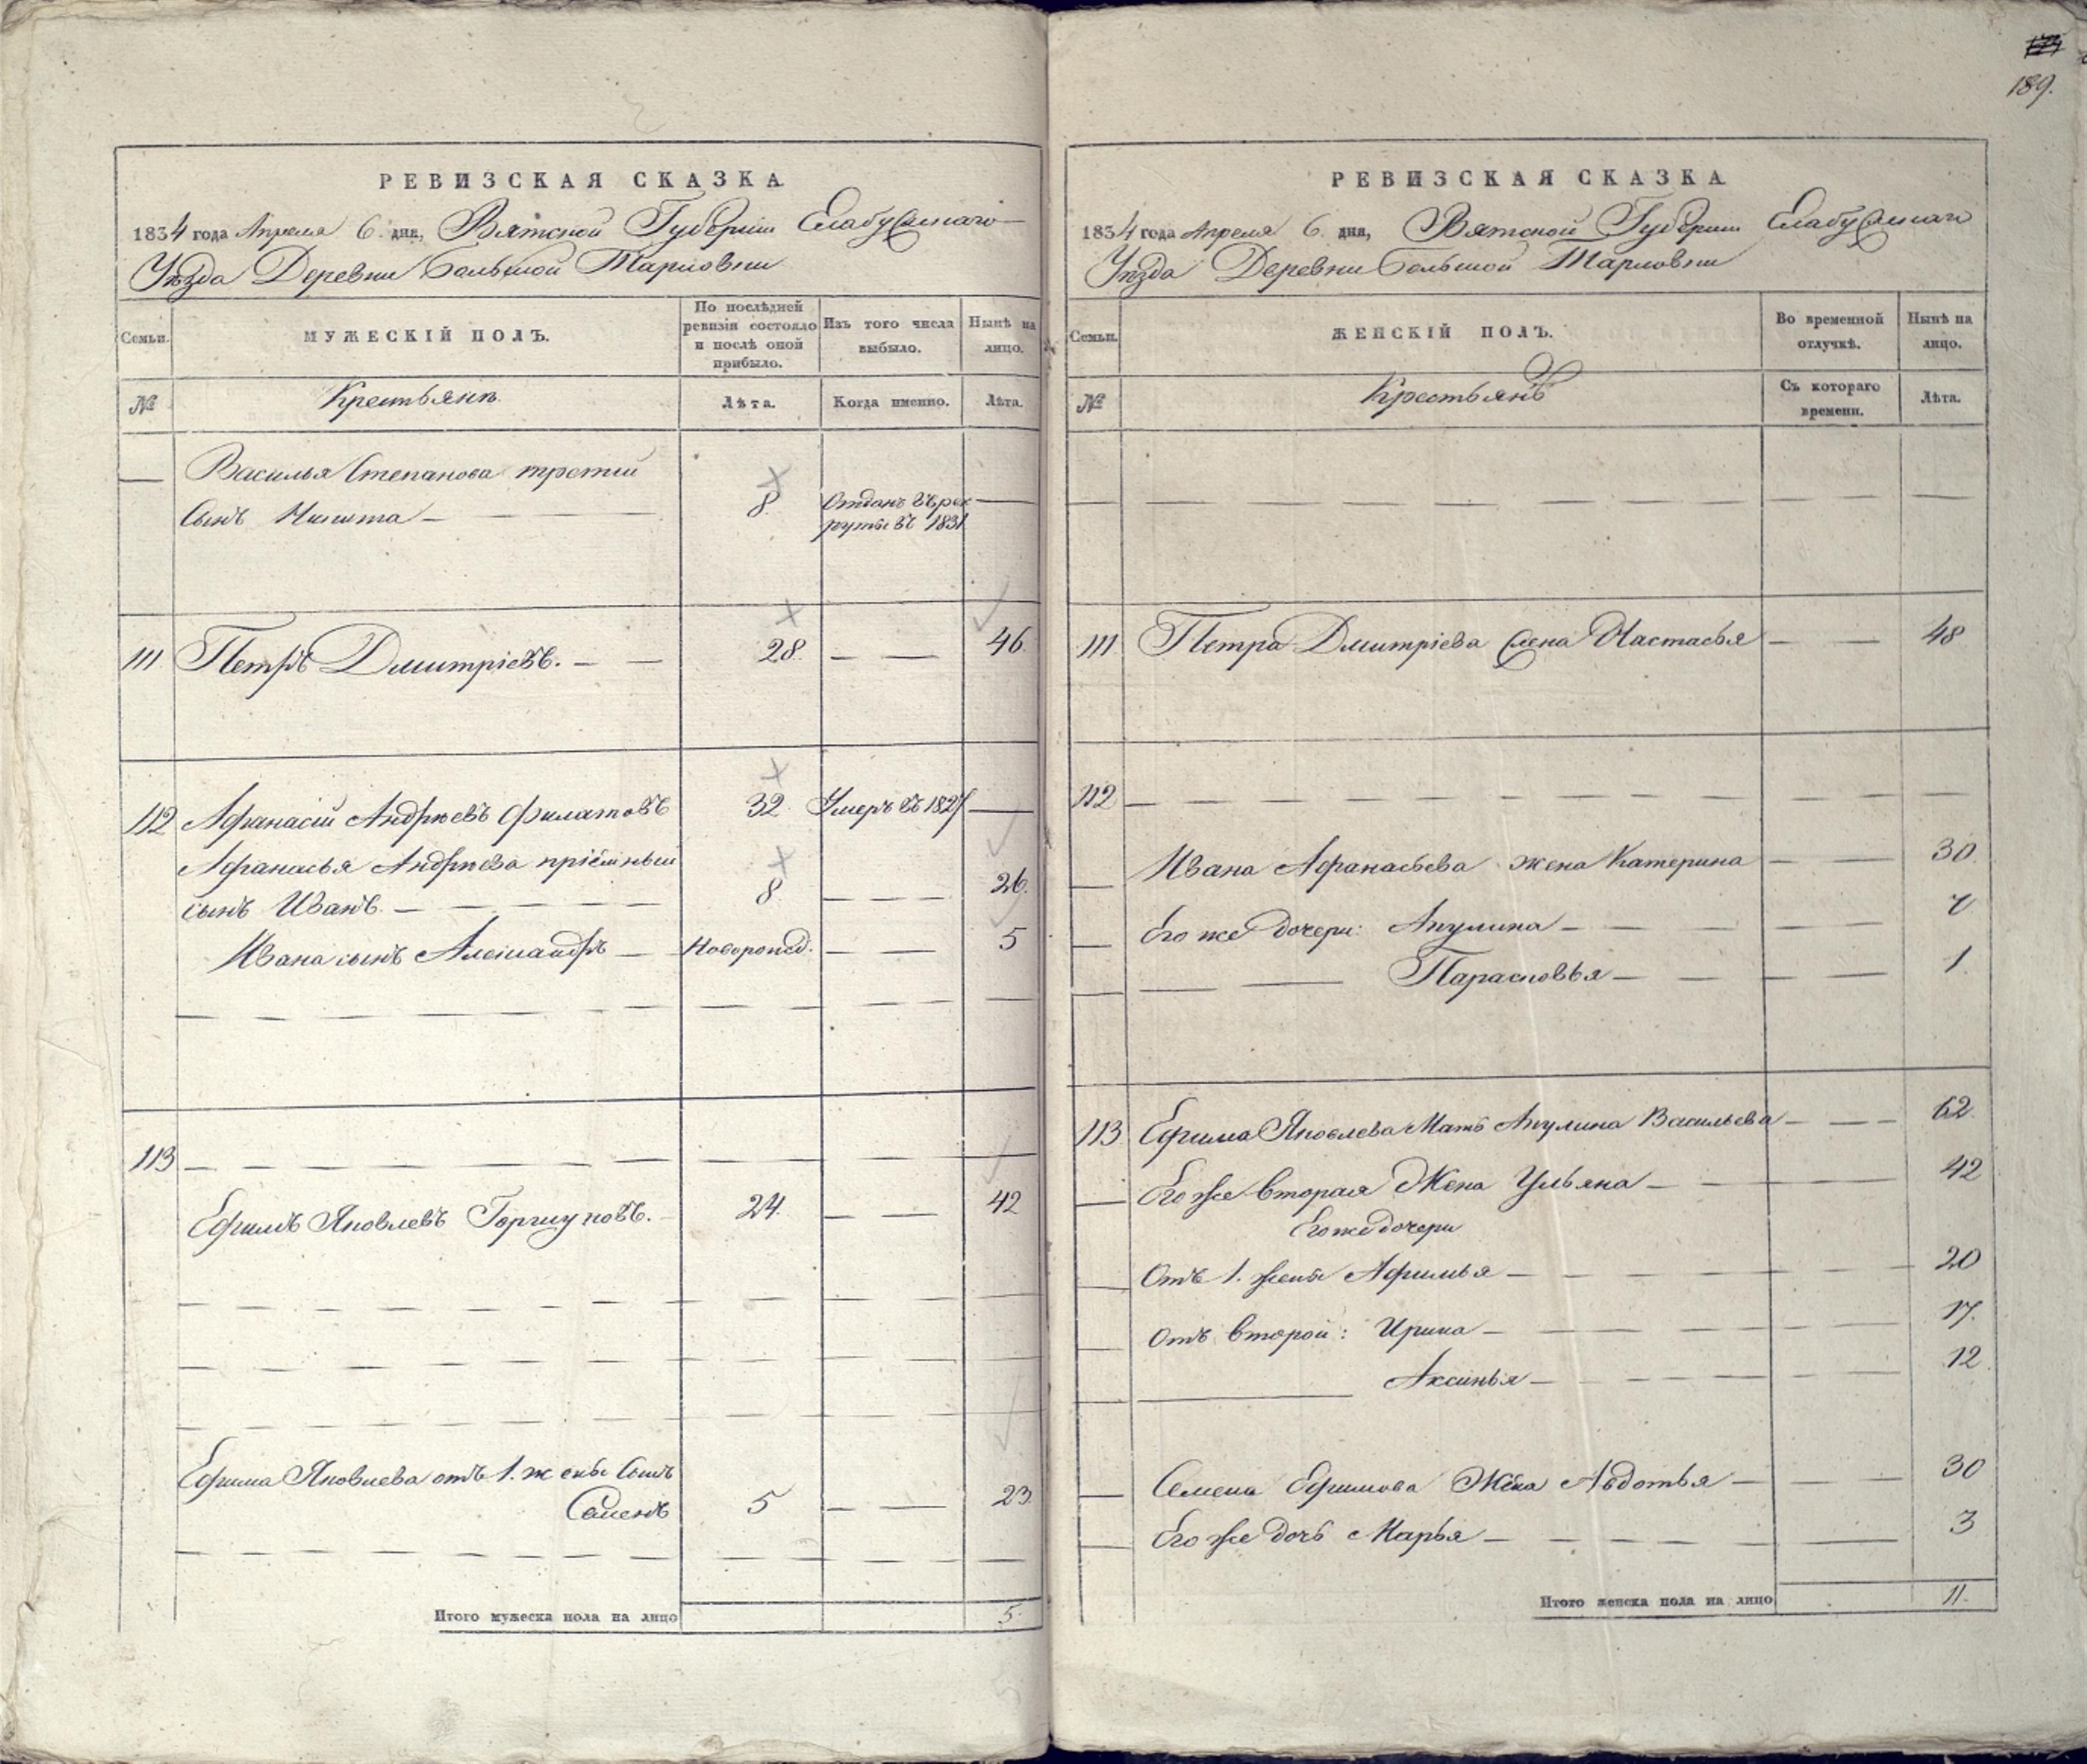 189.
РЕВИЗСКАЯ СКАЗКА
1834 года Апреля 6. дня, Вятской Губерніи Елабужскаго
Уѣзда Деревни Большой Тарловки
Семьи.
МУЖЕСКІЙ ПОЛЪ.
По послѣдней ревизіи состояло и послѣ оной прибыло.
Изъ того числа выбыло.
Нынѣ на лицо.
№
Крестьянъ
Лѣта.
Когда именно.
Лѣта.
Василья Степанова третій
сынъ Никита — 8. Отданъ въ рек
руты въ 1831 —
111 Петръ Дмитріевъ. — — 28. — — 46.
112 Афанасій Андрѣевъ Филатовъ 32. Умеръ въ 1827 —
Афанасья Андрѣева пріёмный
сынъ Иванъ. — 8. — — — 26.
Ивана сынъ Александръ — Новорожд. — — 5
113 —
Ефимъ Яковлевъ Горшуновъ. — 24. — — 42
Ефима Яковлева отъ 1. жены Сынъ
Семенъ 5 — — 23.
Итого мужеска пола на лицо 5.
РЕВИЗСКАЯ СКАЗКА
1834 года Апреля 6. дня, Вятской Губерніи Елабужскаго
Уѣзда Деревни Большой Тарловки
Семьи.
ЖЕНСКІЙ ПОЛЪ.
Во временной отлучкѣ.
Нынѣ на лицо.
№
Крестьянъ
Съ котораго времени.
Лѣта.
111 Петра Дмитріева Жена Настасья — — 48
112 —
Ивана Афанасьева жена Катерина — — 30.
Его же дочери: Акулина — 7
— Парасковья — 1.
113 Ефима Яковлева Мать Акулина Васильева — — — 62.
Его же вторая Жена Ульяна — 42
Его же дочери
Отъ 1. жены Афимья — 20
Отъ второй: Ирина — 17.
Аксинья — 12.
Семена Ефимова Жена Авдотья — 30
Его же дочь Марья — 3
Итого женска пола на лицо 11.